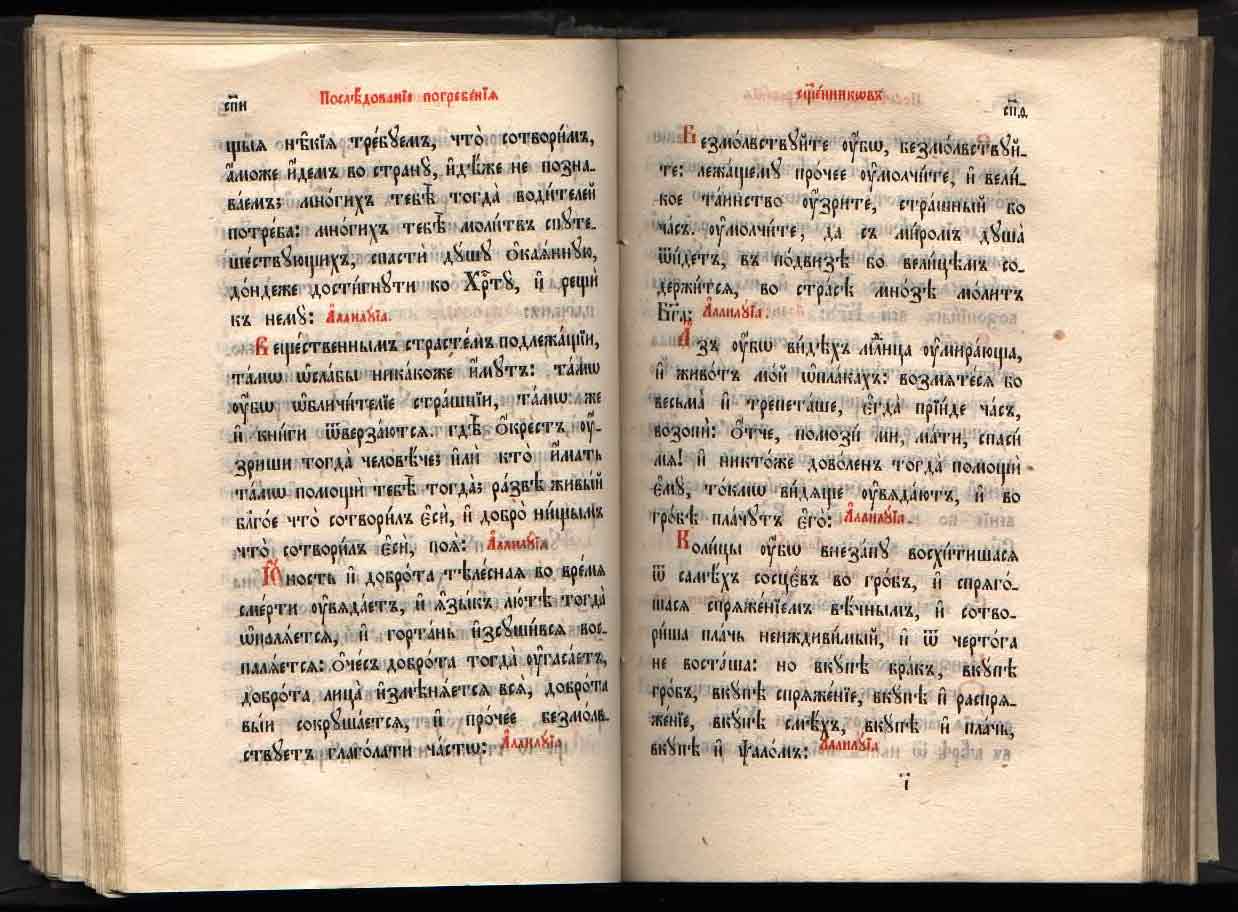 сп҃и
Послѣ́дованїе погребе́нїѧ
щыѧ нѣ̑кїѧ тре́бꙋемъ, что̀ сотвори́мъ,
а҆́може и҆́демъ во странꙋ̀, и҆дѣ́же не позна-
ва́емъ; мно́гихъ тебѣ̀ тогда̀ води́телей
потре́ба: мно́гихъ тебѣ̀ моли́твъ спꙋте-
ше́ствꙋющихъ, спастѝ дꙋ́шꙋ ѻ҆каѧ́ннꙋю,
до́ндеже дости́гнꙋти ко Хрⷭ҇тꙋ̀, и҆ рещѝ
къ немꙋ̀: А҆ллилꙋ́їа.
Веще́ственнымъ страсте́мъ подлежа́щїи,
та́мѡ ѡ҆сла́бы ника́коже и҆́мꙋтъ: та́мѡ
ᲂу҆́бѡ ѡ҆бличи́телїе стра́шнїи, та́мѡ же
и҆ кни̑ги ѿверза́ютсѧ. гдѣ̀ ѻ҆́крестъ ᲂу҆́-
зриши тогда̀ человѣ́че; и҆лѝ кто̀ и҆́мать
та́мѡ помощѝ тебѣ̀ тогда̀; ра́звѣ живы́й
бл҃го́е что̀ сотвори́лъ є҆сѝ, и҆ добро̀ ни́щымъ
что̀ сотвори́лъ є҆сѝ, поѧ̀: А҆ллилꙋ́їа
Ю҆́ность и҆ добро́та тѣле́снаѧ во вре́мѧ
сме́рти ᲂу҆вѧда́етъ, и҆ ѧ҆зы́къ лю́тѣ тогда̀
ѡ҆палѧ́етсѧ, и҆ горта́нь и҆зсꙋши́всѧ вос-
палѧ́етсѧ: ѻ҆че́съ добро́та тогда̀ ᲂу҆гаса́етъ,
добро́та лица̀ и҆змѣнѧ́етсѧ всѧ̀, добро́та
вы́и сокрꙋша́етсѧ, и҆ про́чее безмо́лв-
ствꙋетъ глаго́лати ча́стѡ: А҆ллилꙋ́їа
сщ҃е́нникѡвъ
сп҃ѳ.
Безмо́лвствꙋйте ᲂу҆́бѡ, безмо́лвствꙋй-
те: лежа́щемꙋ про́чее ᲂу҆молчи́те, и҆ вели́-
кое та́инство ᲂу҆́зрите, стра́шный бо
ча́съ. ᲂу҆молчи́те, да съ ми́ромъ дꙋша̀
ѿи́детъ, въ по́двизѣ бо вели́цѣмъ со-
держи́тсѧ, во стра́сѣ мно́зѣ мо́литъ
Бг҃а: А҆ллилꙋ́їа.
А҆́зъ ᲂу҆́бѡ ви́дѣхъ млⷣнца ᲂу҆мира́юща,
и҆ живо́тъ мо́й ѡ҆пла́кахъ: возмѧте́сѧ бо
весьма̀ и҆ трепета́ше, є҆гда̀ прїи́де ча́съ,
возопѝ: ѻ҆́тче, помозѝ ми, ма́ти, спасѝ
мѧ̀! и҆ никто́же дово́ленъ тогда̀ помощѝ
є҆мꙋ̀, то́кмѡ ви́дѧще ᲂу҆вѧда́ютъ, и҆ во
гро́бѣ пла́чꙋтъ є҆го̀: А҆ллилꙋ́їа.
Коли́цы ᲂу҆́бѡ внеза́пꙋ восхи́тишасѧ
ѿ самѣ́хъ сосцє́въ во гро́бъ, и҆ спрѧго́-
шасѧ спрѧже́нїемъ вѣ́чнымъ, и҆ сотво-
ри́ша пла́чь неиждиви́мый, и҆ ѿ черто́га
не воста́ша: но вкꙋ́пѣ бра́къ, вкꙋ́пѣ
гро́бъ, вкꙋ́пѣ спрѧже́нїе, вкꙋ́пѣ и҆ распрѧ-
же́нїе, вкꙋ́пѣ смѣ́хъ, вкꙋ́пѣ и҆ пла́чь,
вкꙋ́пѣ и҆ ѱало́мъ: А҆ллилꙋ́їа
ї